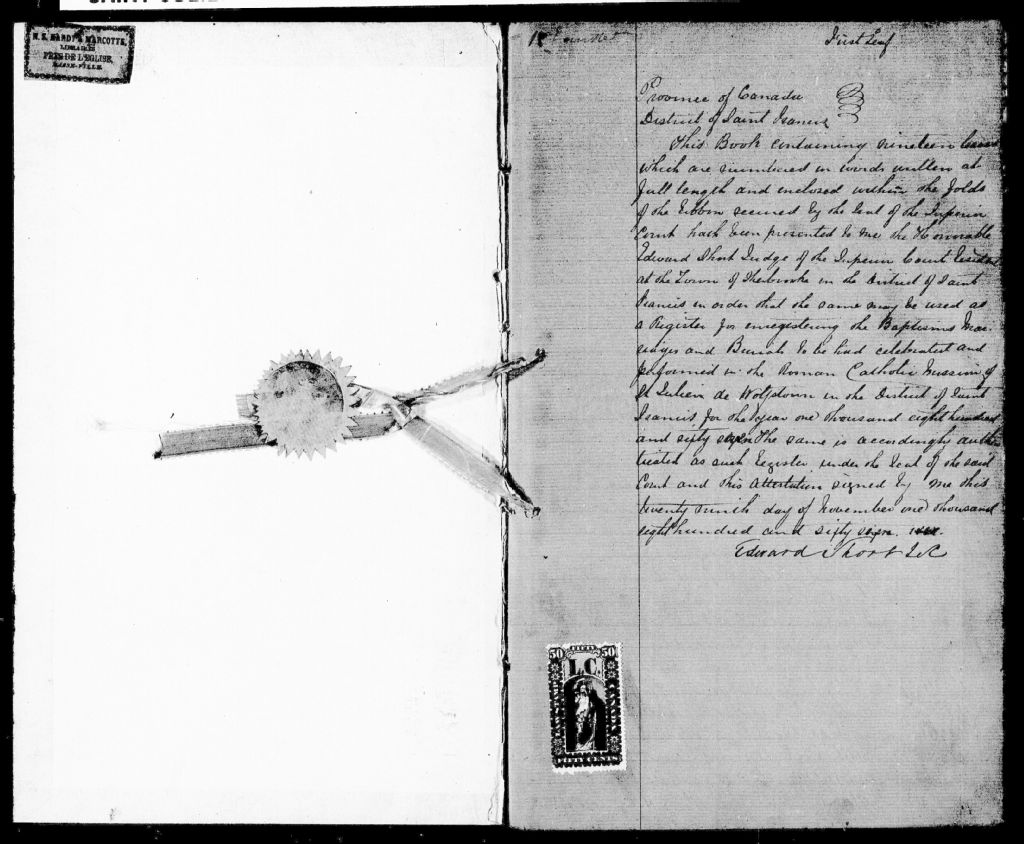 N. S. HARDY & MARCOTTE,
LIBRAIRES
PRES DE L'EGLISE,
BASSE-VILLE.
First Leaf
Province of Canada
District of Saint Francis
This Book containing nineteen leaves
which are numbered in words written at
full length and enclosed within the folds
of the Ribbon secured by the Seal of the Superior
Court hath been presented to me the Honorable
Edward Short Judge of the Superior Court residing
at the Town of Sherbrooke in the District of Saint
Francis in order that the same may be used as
a Register for enregistering the Baptisms Mar-
riages and Burials to be had celebrated and
performed in the Roman Catholic Mission of
St Julien de Wolfstown in the District of Saint
Francis, for the year one thousand eight hundred
and sixty seven The same is accordingly authen
ticated as such Register under the Seal of the said
Court and this Attestation signed by me this
twenty ninth day of November one thousand
eight hundred and sixty
Edward Short J.S.C
50 FIFTY 50
L.C.
LAW STAMP
CANADA
FIFTY CENTS